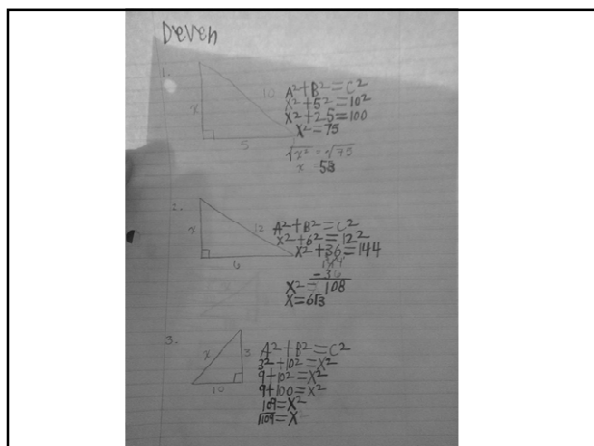 Deven
1.
x
10
5
A²+B²=C²
x²+5²=10²
x²+25=100
x²=75
√x² = √75
x 5√3
2.
x
12
6
A²+B²=C²
x²+6²=12²
x²+36=144
-36
x²=108
x=6√3
3.
x
3
10
A²+B²=C²
3²+10²=x²
9+10²=x²
9+100=x²
109=x²
√109=x